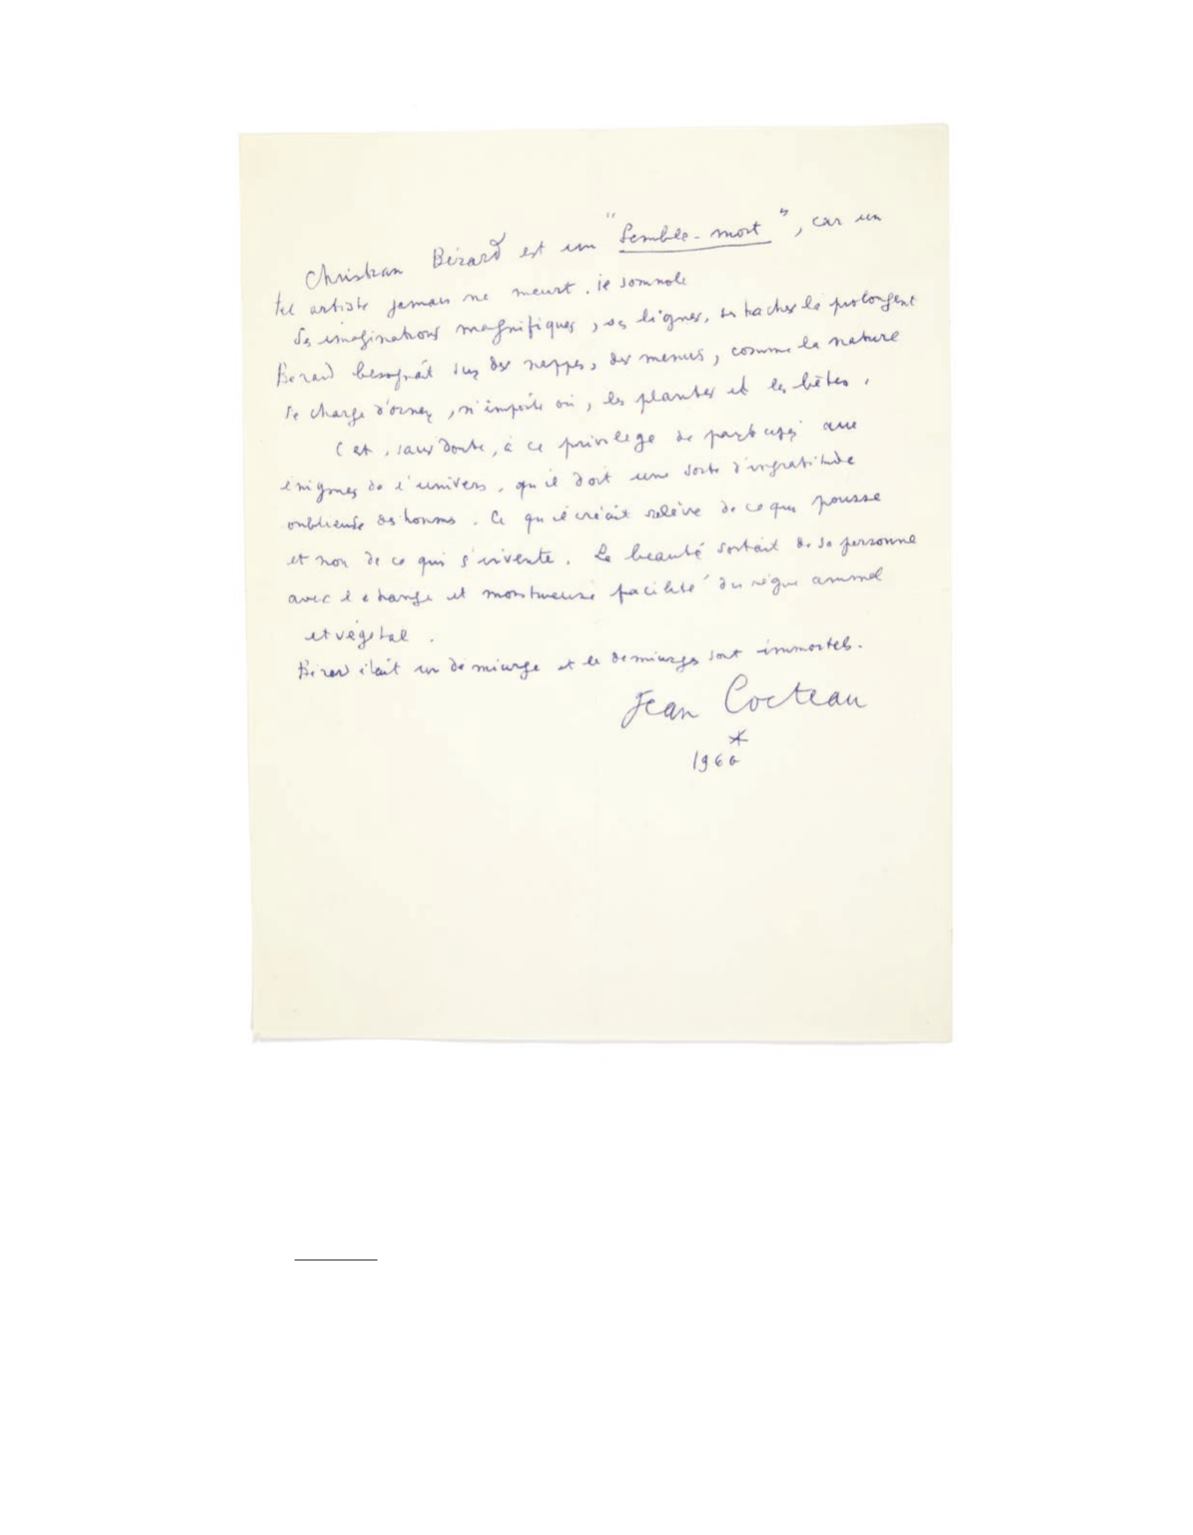 Christian Bérard est un "Semble-mort", car un
tel artiste jamais ne meurt. il somnole
Ses imaginations magnifiques, ses lignes, ses taches le prolongent
Bérard besognait sur des nappes, des menus, comme la nature
se charge d'orner, n'importe où, les plantes et les bêtes.
C'est, sans doute, à ce privilège de participer aux
énigmes de l'univers, qu'il doit une sorte d'ingratitude
oublieuse des hommes. Ce qu'il créait relève de ce qui pousse
et non de ce qui s'invente. La beauté sortait de sa personne
avec l'étrange et monstrueuse facilité du règne animal
et végétal.
Bérard était un démiurge et les démiurges sont immortels.
Jean Cocteau
*
1960